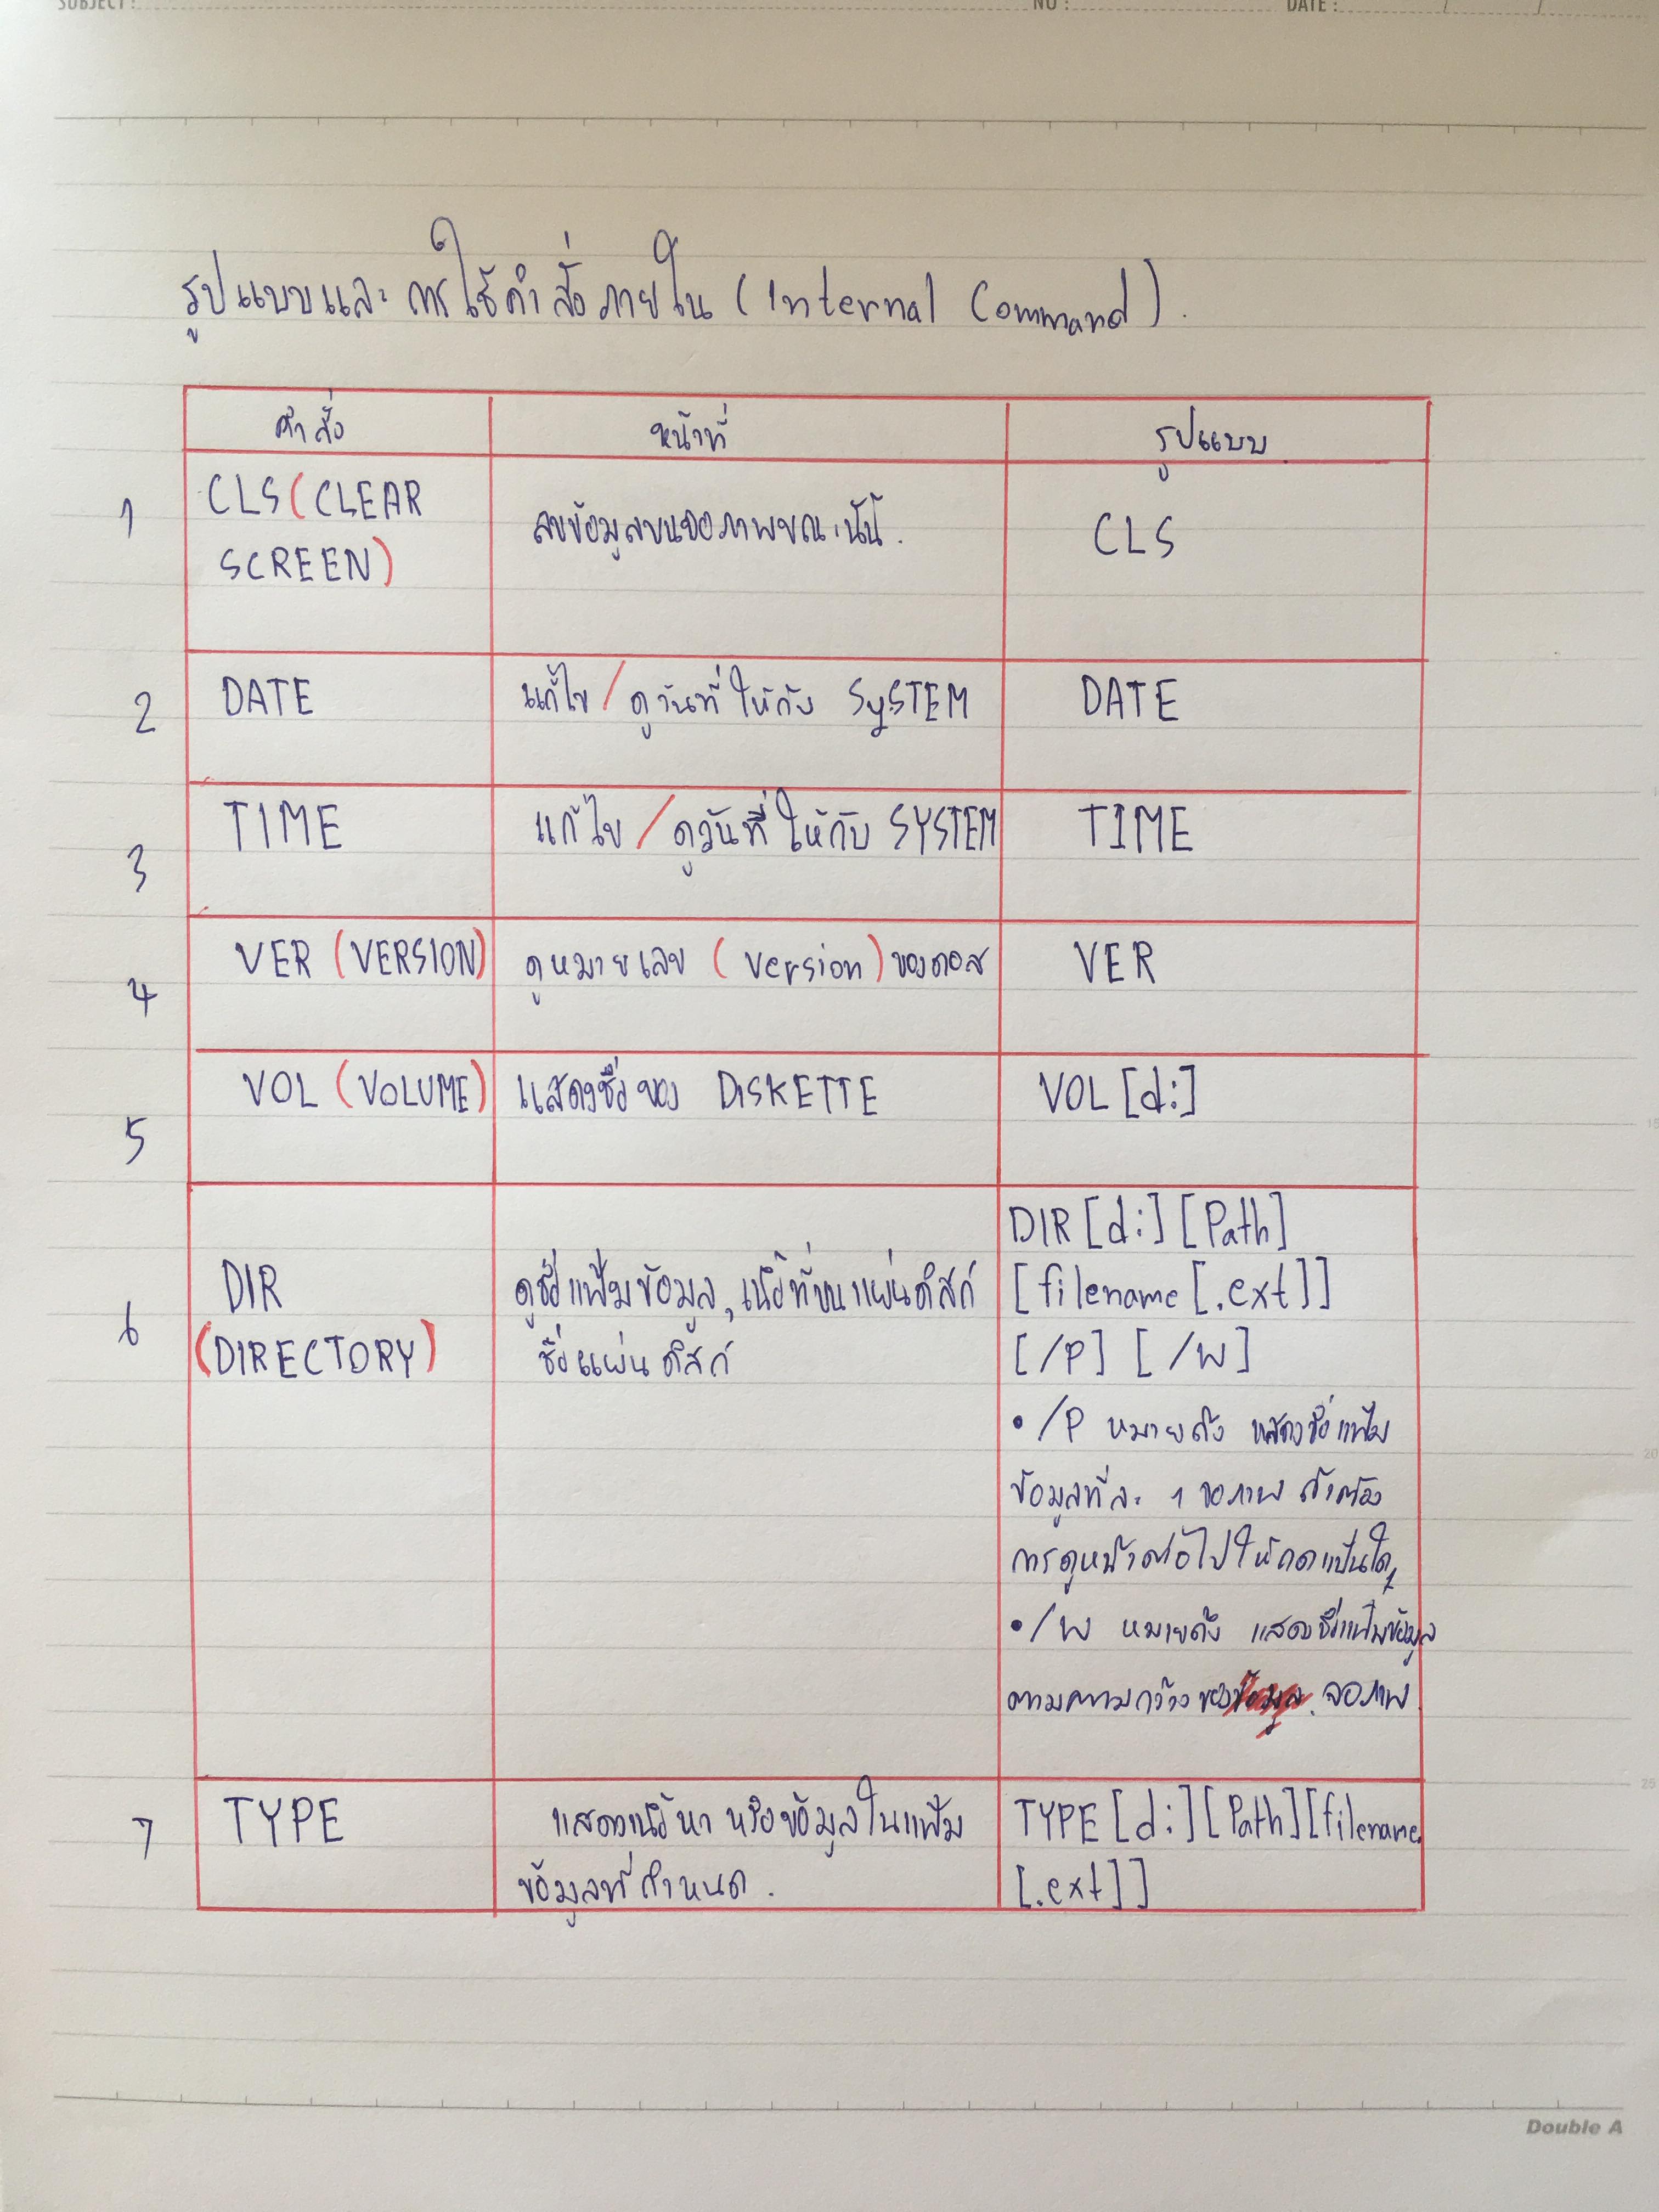 SUBJECT : NO : DATE : / /
รูปแบบและการใช้คำสั่งภายใน (Internal Command).
คำสั่ง หน้าที่ รูปแบบ
1 CLS (CLEAR
SCREEN) ลบข้อมูลบนจอภาพขณะนั้น. CLS
2 DATE แก้ไข / ดูวันที่ให้กับ SYSTEM DATE
3 TIME แก้ไข / ดูวันที่ให้กับ SYSTEM TIME
4 VER (VERSION) ดูหมายเลข (version) ของดอส VER
5 VOL (VOLUME) แสดงชื่อของ DISKETTE VOL [d:]
DIR [d:] [Path]
6 DIR ดูชื่อแฟ้มข้อมูล, เนื้อที่บนแผ่นดิสก์ [filename [.ext]]
(DIRECTORY) ชื่อแผ่นดิสก์ [/P] [/W]
• /P หมายถึง แสดงชื่อแฟ้ม
ข้อมูลทีละ 1 จอภาพ ถ้าต้อง
การดูหน้าต่อไปให้กดแป้นใดๆ
• /W หมายถึง แสดงชื่อแฟ้มข้อมูล
ตามความกว้างของ จอภาพ
7 TYPE แสดงเนื้อหา หรือข้อมูลในแฟ้ม TYPE [d:] [Path] [filename
ข้อมูลที่กำหนด. [.ext]]
Double A